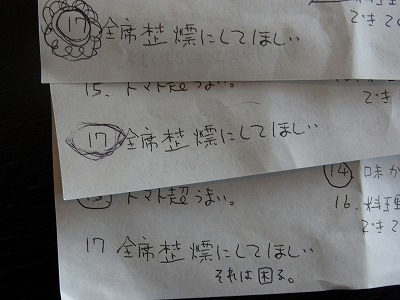 17 全席禁煙にしてほしい
できて
15. トマト超うまい。
でき
17 全席禁煙にしてほしい
14 味が
15. トマト超うまい。
16. 料理
できて
17 全席禁煙にしてほしい
それは困る。